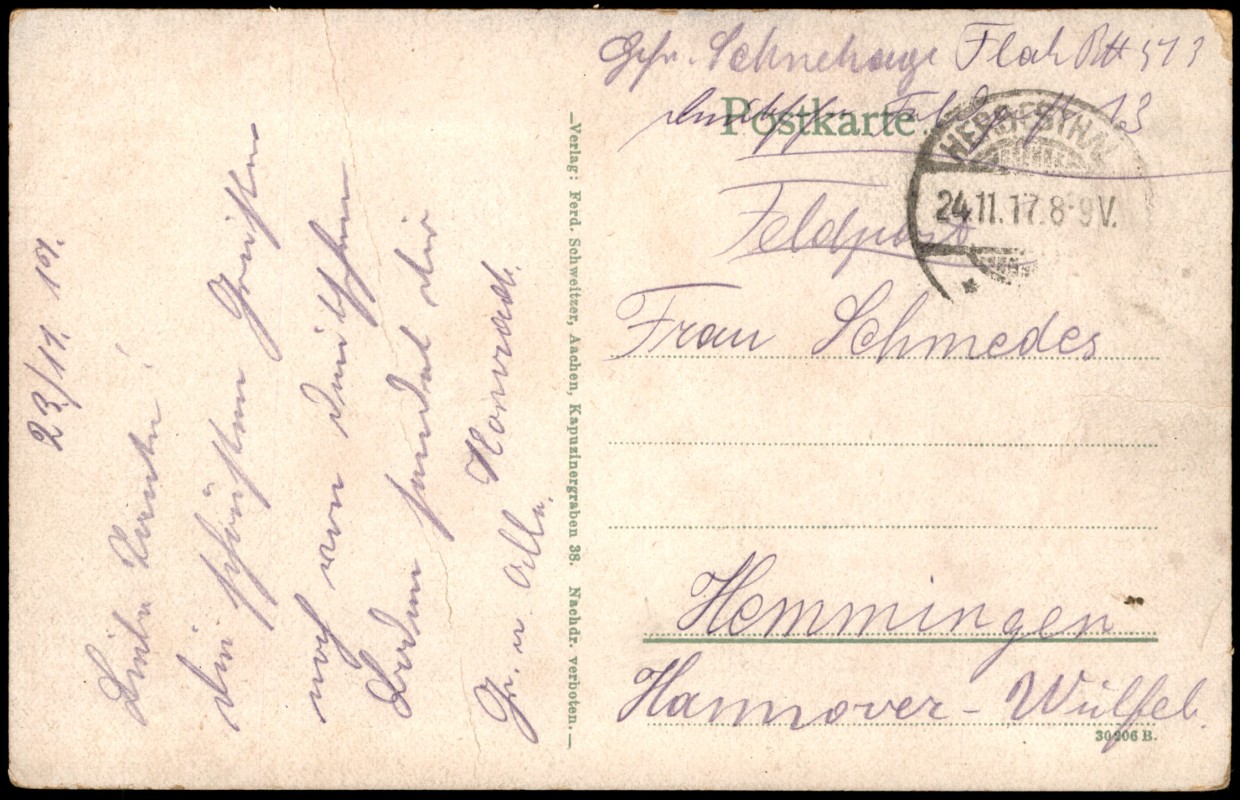 23/11. 17.
Liebe Tante!
die schönsten Grüße
noch von deutschem
Boden sendet dir
Konrad.
Gr. a. Alle.
—Verlag: Ferd. Schweitzer, Aachen, Kapuzinergraben 38. Nachdr. verboten.—
Gefr. Schnehage Flak Btt 513
Postkarte
13
HERBESTHAL
24.11.17.8-9V.
Feldpost
Frau Schmedes
Hemmingen
Hannover-Wülfel.
30206 B.